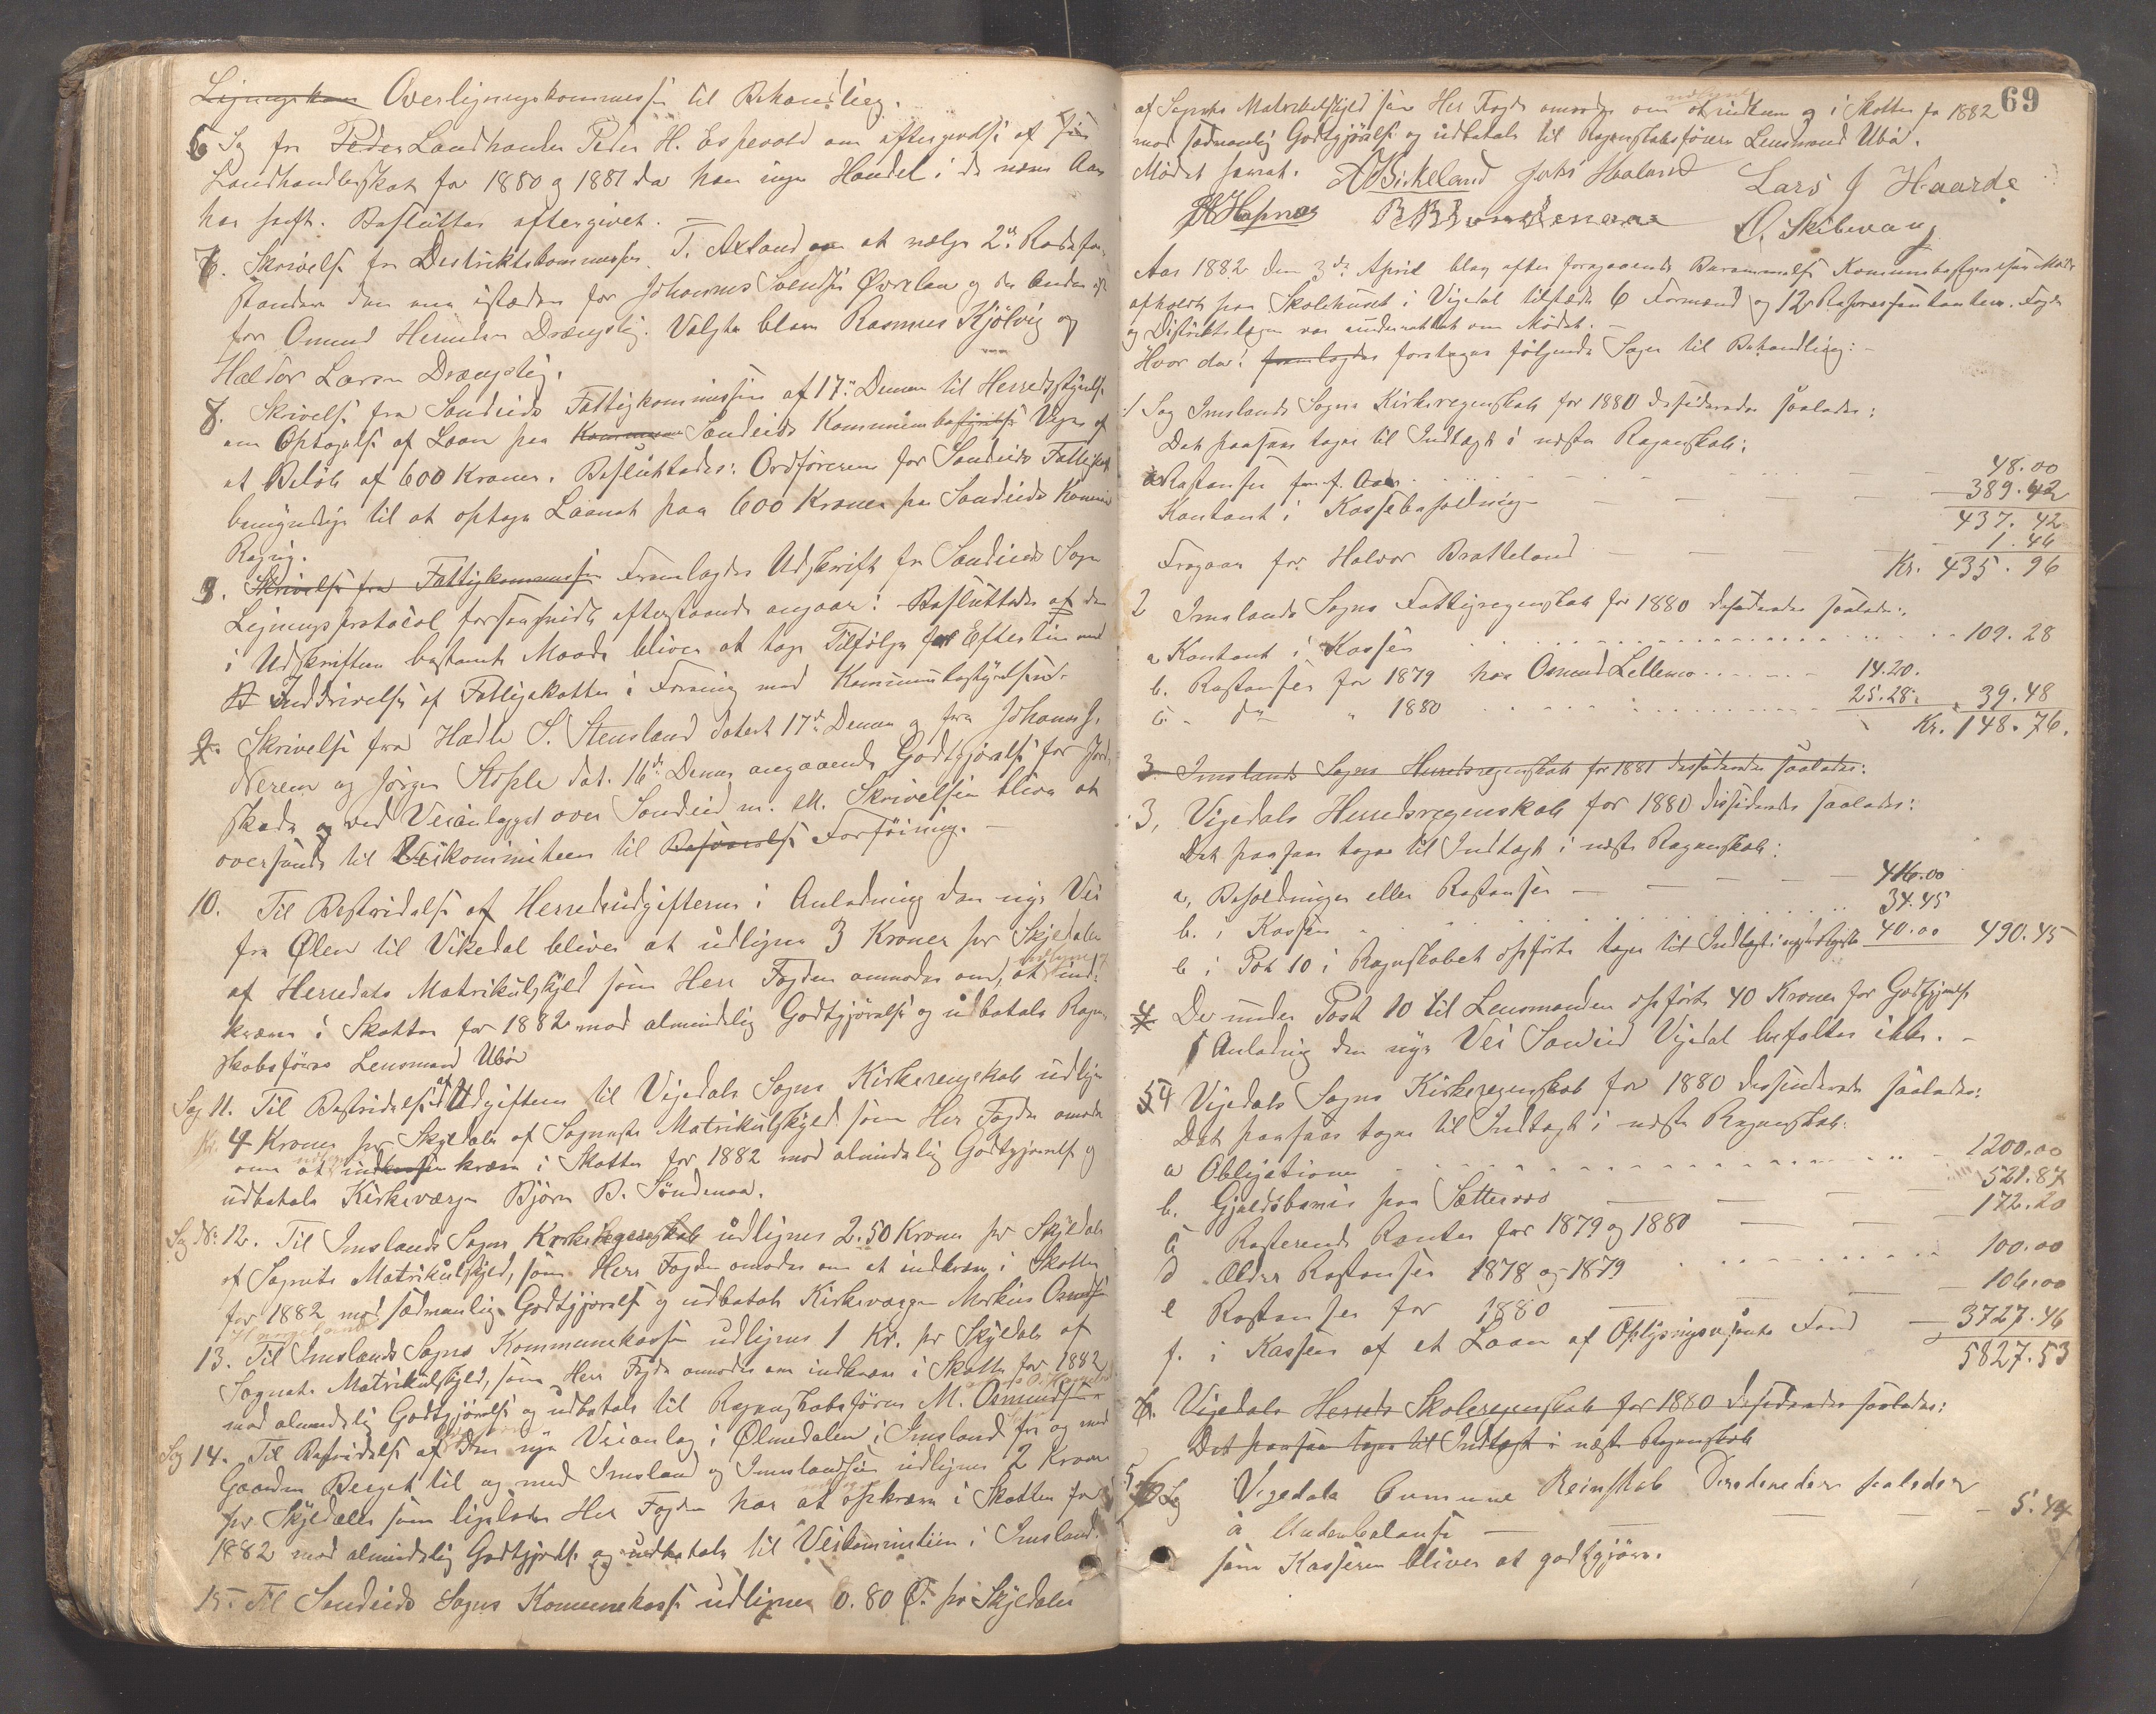 Overligningskommissi til Behandling.
6 Sg fra Landhandler Peder H. Espevold om eftergivelse af sin
Landhandlerskat for 1880 g 1881 da han ingen Handel i de nævn Aar
har haft. Besluttes eftergivet. —
7. Skrivelse fra Destriktskommissen T. Axland om at vælge 2de Rodefor
standere den ene istæden for Johannes Svendsen Øvrebø g den Anden
for Omund Drængstig. Valgte blev Rasmus Kjölvig og
Haldor Larsen Drængstig.
8. Skrivelse fra Sandeids Fattigkommission af 17de Dennes til Herredsstyrelse
om Optagelse af Laan paa Sandeids Kommunebestyrelse Vegne af
et Beløb af 600 Kroner. Besluttedes: Ordføreren for Sandeids Fattigk
bemyndiges til at optage Laanet paa 600 Kroner paa Sandeids Kommun
Regning.
9. Skrivelse fra Fattigkommissen Fremlagdes Udskrift fra Sandeids Sogn
Ligningsprotocol forsaavidt efterstaaende angaar: Besluttedes af den
i Udskriften bestemte Maade bliver at tage Tilfølge
Inddrivelse af Fattigskatten i Forening med Kommunebestyrelsen.
Skrivelse fra Hadle S. Stensland datert 17de Dennes g fra Johannes J.
Nerem og Jörgen Stople dat. 16de Dennes angaaende Godtgjørelse for Jord
skade g ved Veianlægget over Sandeid m. M. Skrivelsen bliver at
oversende til Veikommiteen til Forføining. —
10. Til Bestridelse af Herredsudgifterne i Anledning den nye Vei
fra Ølen til Vikedal bliver at udligne 3 Kroner pr Skjeldaler
af Herredets Matrikulskyld som Herr Fogden anmodes om, at ind-
kræve i Skatten for 1882 mod almindelig Godtgjørelse og udbetale Regn
skabsfører Lensmand Ubø
Sag 11. Til Bestridelse af Udgifterne til Vigedals Sogns Kirkeregnskab udlign
4 Kroner pr Skjeldaler af Sognets Matrikulskyld som Her Fogden anmode
om at kræve i Skatten for 1882 mod almindelig Godtgjørelse g
udbetale Kirkeværge Björn B. Söndenaa.
Sag Nr: 12. Til Imslands Sogns Kirkeregnskab udlignes 2.50 Kroner pr Skjeldaler
af Sognets Matrikulskyld, som Herr Fogden anmodes om at indkræve i Skatten
for 1882 mod sædvanlig Godtgjørelse g udbetale Kirkeværgen Markus Osmundsen
13. Til Imslands Sogns Kommunekasse udlignes 1 Kr. pr Skjeldaler af
Sognets Matrikulskyld, som Herr Fogden anmodes om indkræve i Skatten for 1882
mod almindelig Godtgjørelse og udbetale til Regnskabsfører M. Osmundsen
Sag 14. Til Bestridelse af den nye Veianlæg i Ølmedalen i Imsland fra og med
Gaarden Berget til og med Imsland og Imslandsjøen udlignes 2 Kroner
pr Skjeldaler som ligeledes Her Fogden har at opkræve i Skatten for
1882 mod almindelig Godtgjørelse og udbetale til Veikommiteen i Imsland.
15. Til Sandeids Sogns Kommunekasse udlignes 0.80 Ø. pr Skjeldaler
69
af Sognets Matrikelskyld som Her Fogden anmodes om at indkræve g i Skatten for 1882
mod sædvanlig Godtgjørelse og udbetale til Regnskabsfører Lensmand Ubø.
Mödet hævet. A Birkeland Johs Hovland Lars J Haarde
Hapnes B B Söndenaa O. Skibevaag
Aar 1882 den 3de April blev efter foregaaende Berammelse Kommunebestyrelsen Möde
afholdt paa Skolehuset i Vigedal tilstede 6 Formænd og 12 Repræsentanter. Fogde
og Distriktslægen var underrettet om Mödet. —
Hvor da: fremlagdes foretages følgende Sager til Behandling: —
1 Sag Imslands Sogns Kirkeregnskab for 1880 desiderede saaledes:
Det paasaas tagne til Indtægt i næste Regnskab:
a Restanser fra f. Aar 48.00
Kontant i Kassebeholdning 389.42
437.42
Fragaar for Haldor Bratteland 1.46
Kr. 435.96
2 Imslands Sogns Fattigregnskab for 1880 desiderede saaledes:
a Kontant i Kassen 109.28
b. Restanser for 1879 hos Osmund Lellemo 14.20.
c. do " 1880 25.28. 39.48
Kr. 148.76.
3. Imslands Sogns Herredsregnskab for 1881 desiderede saaledes:
3, Vigedals Herredsregnskab for 1880 desiderede saaledes:
Det paasaas tagne til Indtægt i næste Regnskab:
a, Beholdninger eller Restanser 416.00
b. i Kassen 34.45
c i Post 10 i Regnskabet opførte tages til Indtægt i 40.00 490.45
4 De under Post 10 til Lensmanden opførte 40 Kroner for Godtgjørelse
i Anledning den nye Vei Sandeid Vigedal befattes ikke. —
Vigedals Sogns Kirkeregnskab for 1880 desiderede saaledes:
Det paasaas tagne til Indtægt i næste Regnskab:
a Obligationer 1200.00
b. Gjældsbevis paa 521.87
c Resterende Renter for 1879 og 1880 172.20
d Ældre Restanser 1878 og 1879 100.00
e Restanser for 1880 106.00
f. i Kassen af et Laan af Oplysningsvæsenets Fond 3727.46
5827.53
6. Vigedals Herreds Skoleregnskab for 1880 desiderede saaledes:
Det paasaas tagne til Indtægt i næste Regnskab
Sg Vigedals Comune Reinskab saaleder
a Underbalanse 5.44
som Kasseren bliver at godtgjøre.